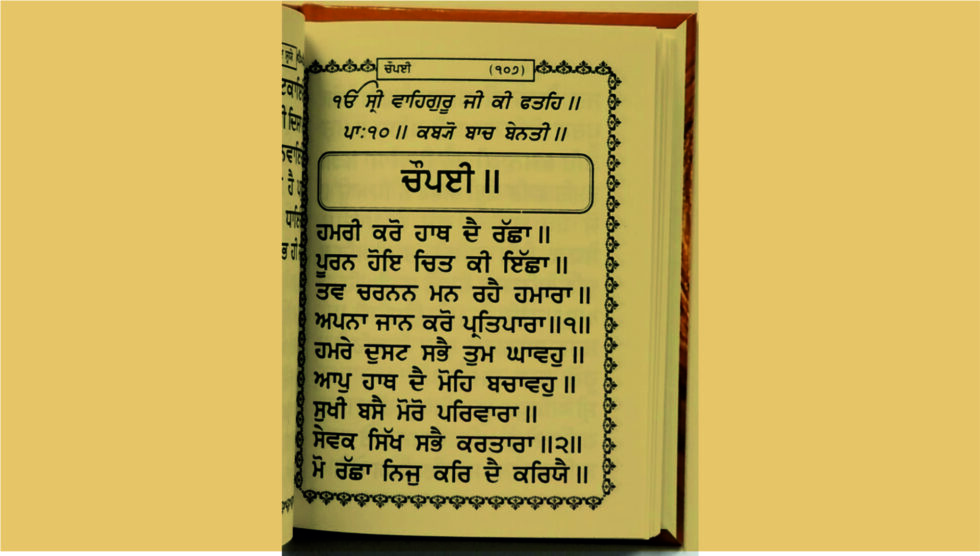 ਚੌਪਈ (੧੦੭)
ੴ ਸ੍ਰੀ ਵਾਹਿਗੁਰੂ ਜੀ ਕੀ ਫਤਹਿ॥
ਪਾ:੧੦॥ ਕਬ੍ਯੋ ਬਾਚ ਬੇਨਤੀ॥
ਚੌਪਈ॥
ਹਮਰੀ ਕਰੋ ਹਾਥ ਦੈ ਰੱਛਾ॥
ਪੂਰਨ ਹੋਇ ਚਿਤ ਕੀ ਇੱਛਾ॥
ਤਵ ਚਰਨਨ ਮਨ ਰਹੈ ਹਮਾਰਾ॥
ਅਪਨਾ ਜਾਨ ਕਰੋ ਪ੍ਰਤਿਪਾਰਾ॥੧॥
ਹਮਰੇ ਦੁਸਟ ਸਭੈ ਤੁਮ ਘਾਵਹੁ॥
ਆਪੁ ਹਾਥ ਦੈ ਮੋਹਿ ਬਚਾਵਹੁ॥
ਸੁਖੀ ਬਸੈ ਮੋਰੋ ਪਰਿਵਾਰਾ॥
ਸੇਵਕ ਸਿੱਖ ਸਭੈ ਕਰਤਾਰਾ॥੨॥
ਮੋ ਰੱਛਾ ਨਿਜੁ ਕਰਿ ਦੈ ਕਰਿਯੈ॥